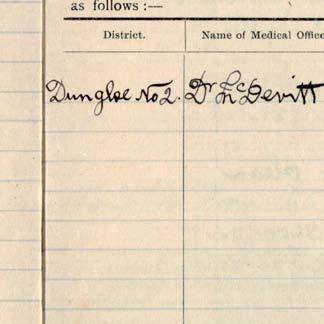 as follows :—
District. Name of Medical Office
Dungloe No 2. Dr McDevitt